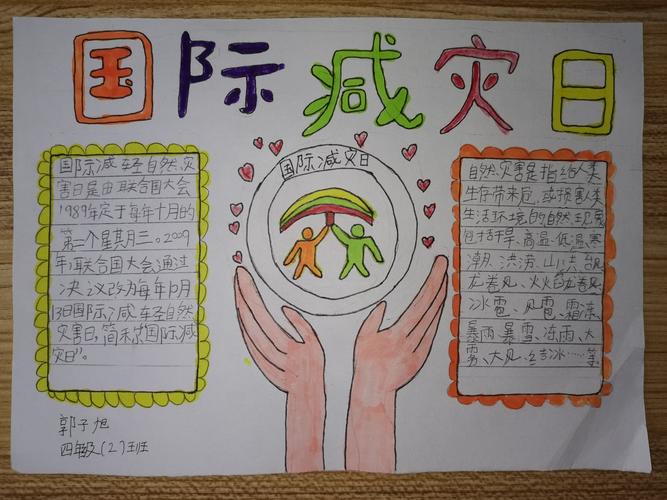 国际减灾日
国际减轻自然灾
害日是由联合国大会
1989年定于每年十月的
第二个星期三。2009
年,联合国大会通过
决议改为每年10月
13日国际减轻自然
灾害日,简称"国际减
灾日"。
郭子旭
四年级(2)班
国际减灾日
自然灾害是指给人类
生存带来危或损害人类
生活环境的自然现象
包括干旱、高温、低温、寒
潮、洪涝、山
龙卷风、火
冰雹、风雹、霜冻、
暴雨、暴雪、冻雨、大
雾、大风、结冰……等